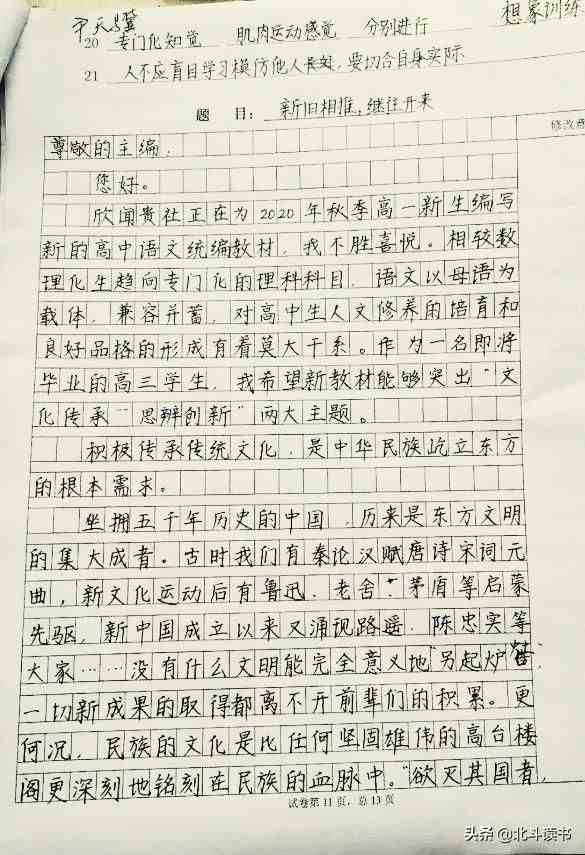 尹天骥
想家训练
20 专门化知觉 肌肉运动感觉 分别进行
21 人不应盲目学习模仿他人长处,要切合自身实际
题 目: 新旧相推,继往开来
修改意
尊敬的主编,
您好。
欣闻贵社正在为2020年秋季高一新生编写
新的高中语文统编教材,我不胜喜悦。相较数
理化生趋向专门化的理科科目,语文以母语为
载体,兼容并蓄,对高中生人文修养的培育和
良好品格的形成有着莫大干系。作为一名即将
毕业的高三学生,我希望新教材能够突出“文
化传承”“思辨创新”两大主题。
积极传承传统文化,是中华民族屹立东方
的根本需求。
坐拥五千年历史的中国,历来是东方文明
的集大成者。古时我们有秦论汉赋唐诗宋词元
曲,新文化运动后有鲁迅、老舍、茅盾等启蒙
先驱,新中国成立以来又涌现路遥、陈忠实等
大家……没有什么文明能完全意义地“另起炉灶”,
一切新成果的取得都离不开前辈们的积累。更
何况,民族的文化是比任何坚固雄伟的高台楼
阁更深刻地铭刻在民族的血脉中。“欲灭其国者,
试卷第11页,总13页
头条@北斗读书